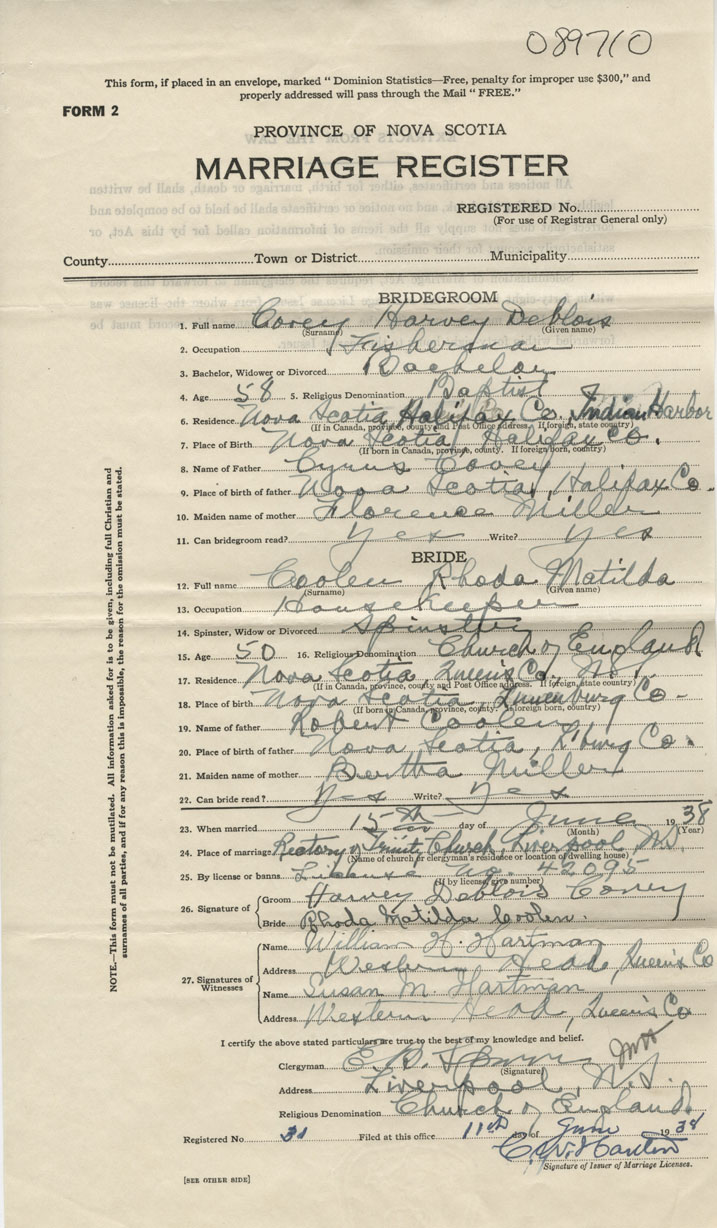 089710
This form, if placed in an envelope, marked " Dominion Statistics—Free, penalty for improper use $300," and
properly addressed will pass through the Mail " FREE."
FORM 2
PROVINCE OF NOVA SCOTIA
MARRIAGE REGISTER
REGISTERED No.
(For use of Registrar General only)
County Town or District Municipality
BRIDEGROOM
1. Full name Covey Harvey Deblois
(Surname) (Given name)
2. Occupation Fisherman
3. Bachelor, Widower or Divorced Bachelor
4. Age 58 5. Religious Denomination Baptist
6. Residence Nova Scotia Halifax Co. Indian Harbor
(If in Canada, province, county and Post Office address If foreign, state country)
7. Place of Birth Nova Scotia Halifax Co.
(If born in Canada, province, county. If foreign born, country)
8. Name of Father Cyrus Covey
9. Place of birth of father Nova Scotia, Halifax Co.
10. Maiden name of mother Florence Miller
11. Can bridegroom read? Yes Write? Yes
BRIDE
12. Full name Coolen Rhoda Matilda
(Surname) (Given name)
13. Occupation Housekeeper
14. Spinster, Widow or Divorced Spinster
15. Age 50 16. Religious Denomination Church of England
17. Residence Nova Scotia, Queen's Co., N.S.
(If in Canada, province, county and Post Office address If foreign, state country)
18. Place of birth Nova Scotia, Lunenburg Co-
(If born in Canada, province, county. If foreign born, country)
19. Name of father Robert Coolen
20. Place of birth of father Nova Scotia, L'burg Co.
21. Maiden name of mother Bertha Miller
22. Can bride read? Yes Write? Yes
23. When married 15th day of June 1938
(Month) (Year)
24. Place of marriage Rectory of Trinity Church, Liverpool N.S.
(Name of church or clergyman's residence or location of dwelling house)
25. By license or banns License No. 42095
(If by license, give number)
26. Signature of Groom Harvey Deblois Covey
Bride Rhoda Matilda Coolen.
27. Signatures of Witnesses
Name William H. Hartman
Address Western Head, Queen's Co
Name Susan M. Hartman
Address Western Head, Queen's Co
I certify the above stated particulars are true to the best of my knowledge and belief.
Clergyman E. B.
(Signature)
Address Liverpool, N.S.
Religious Denomination Church of England
Registered No 31 Filed at this office 11th day of June 1938
Signature of Issuer of Marriage Licenses.
[SEE OTHER SIDE]
NOTE.—This form must not be mutilated. All information asked for is to be given, including full Christian and
surnames of all parties, and if for any reason this is impossible, the reason for the omission must be stated.